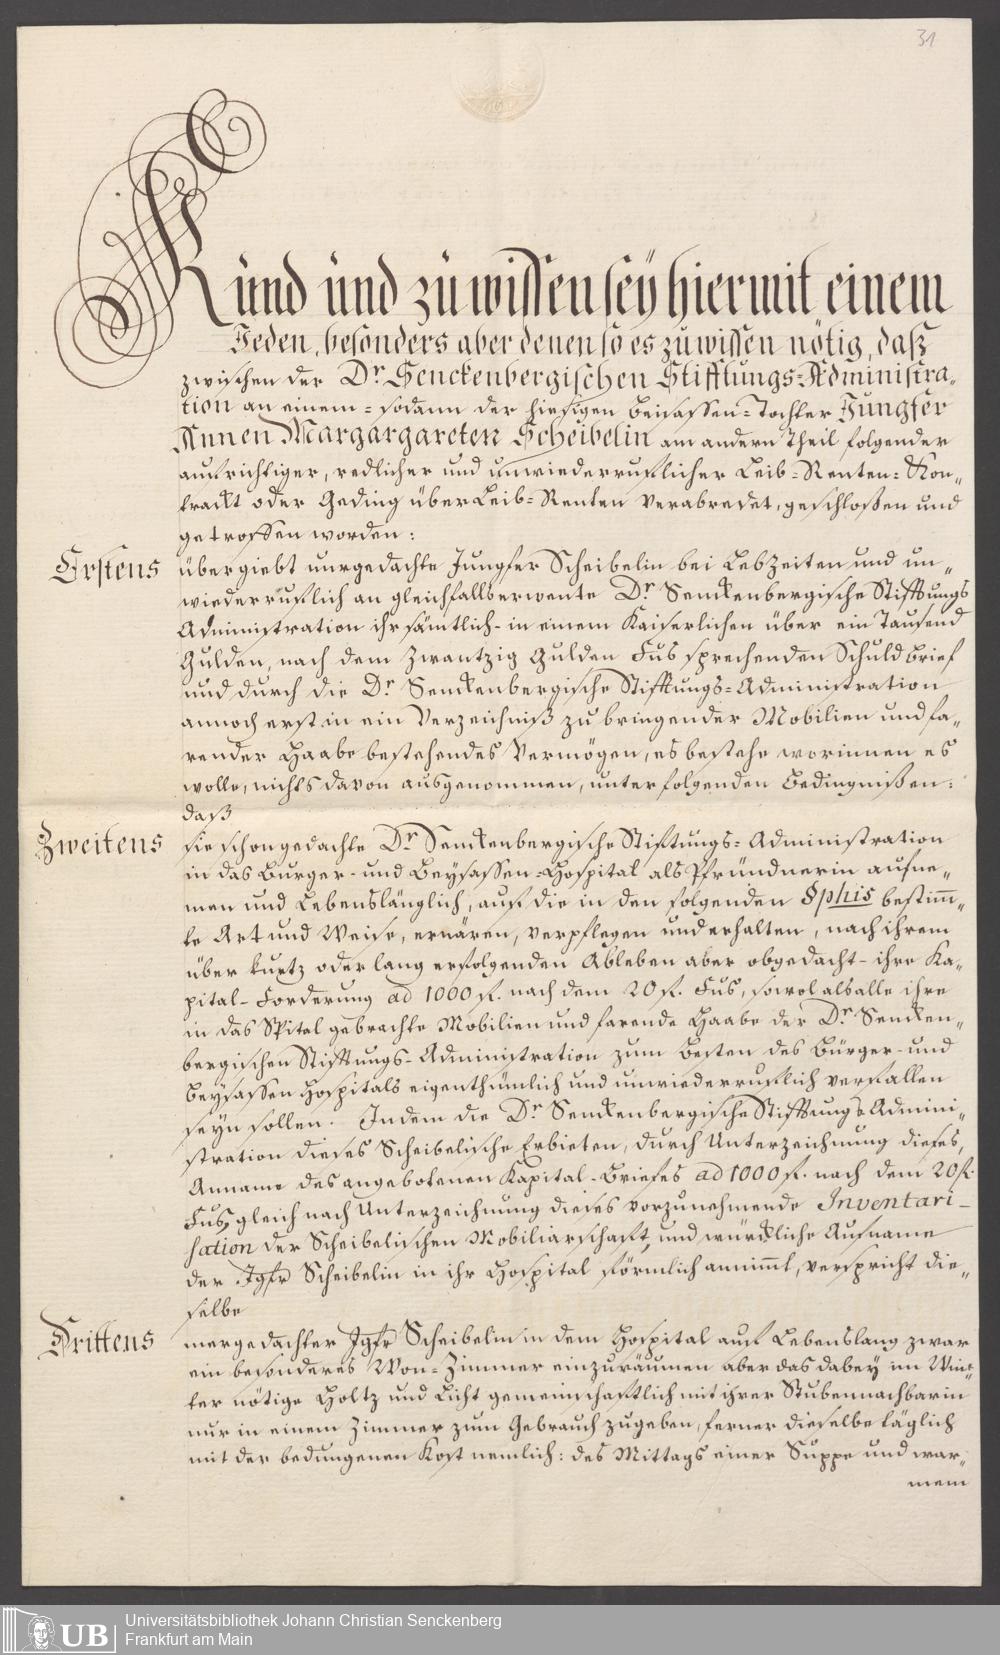 31
Kund und zu wissen sey hiermit einem
Jeden, besonders aber denen so es zu wissen nötig, daß
zwischen der Dr. Senckenbergischen Stifftungs-Administra-
tion an einem- sodann der hiesigen Beisassen-Tochter Jungfer
Annen Margargareten Scheibelin am andern Theil folgender
aufrichtiger, redlicher und unwiederruflicher Leib-Renten-Kon-
trackt oder Geding über Leib-Renten verabredet, geschloßen und
getroffen worden:
Erstens
übergiebt nurgedachte Jungfer Scheibelin bei Lebzeiten und un-
wiederruflich an gleichfallserwente Dr. Senckenbergische Stifftungs
Administration ihr sämtlich- in einem Kaiserlichen über ein Tausend
Gulden, nach dem Zwantzig Gulden Fus sprechenden Schuld Brief
und durch die Dr. Senckenbergische Stifftungs-Administration
annoch erst in ein Verzeichniß zu bringender Mobilien und fa-
render Haabe bestehendes Vermögen, es bestehe worinnen es
wolle, nichts davon ausgenommen, unter folgenden Bedingnißen:
daß
Zweitens
sie schongedachte Dr. Senckenbergische Stiftungs-Administration
in das Burger- und Beysassen-Hospital als Pfründnerin aufne-
men und Lebenslänglich, auf die in den folgenden §phis bestimm-
te Art und Weise, ernären, verpflegen und erhalten, nach ihrem
über kurtz oder lang erfolgenden Ableben aber obgedacht- ihre Ka-
pital-Forderung ad 1000 fl. nach dem 20 fl. Fus, sowol als alle ihre
in das Spital gebrachte Mobilien und farende Haabe der Dr. Sencken-
bergischen Stifftungs-Administration zum Besten des Bürger- und
Beysassen Hospitals eigenthümlich und unwiederruflich verfallen
seyn sollen. Indem die Dr. Senckenbergische Stifftungs Admini-
stration dieses Scheibelische Erbieten, durch Unterzeichnung dieses,
Anname des angebotenen Kapital-Briefes ad 1000 fl. nach dem 20 fl.
Fus, gleich nach Unterzeichnung dieses vorzunehmende Inventari-
sation der Scheibelischen Mobiliarschaft, und würckliche Aufname
der Jgfr Scheibelin in ihr Hospital förmlich annimmt, verspricht die-
selbe
Drittens
mergedachter Jgfr Scheibelin in dem Hospital auf Lebenslang zwar
ein besonderes Won-Zimmer einzuräumen aber das dabey im Win-
ter nötige Holtz und Licht gemeinschaftlich mit ihrer Stubennachbarin
nur in einem Zimmer zum Gebrauch zugeben, ferner dieselbe täglich
mit der bedungenen Kost nemlich: des Mittags einer Suppe und war-
mem
UB
Universitätsbibliothek Johann Christian Senckenberg
Frankfurt am Main